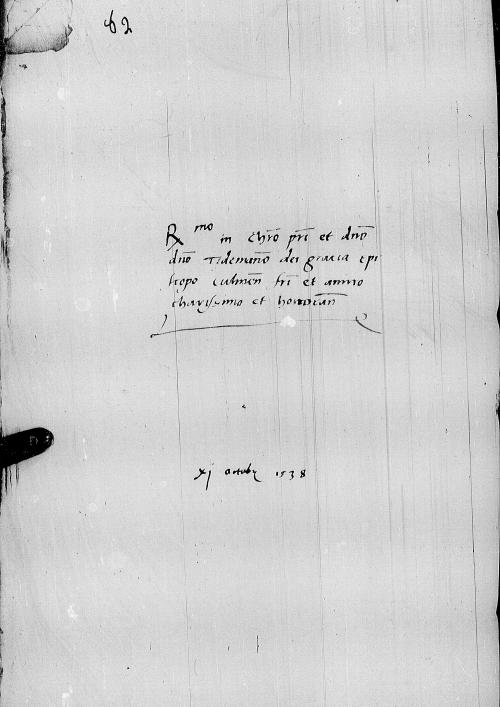 62
Rmo in Chro pri et dno
dno Tidemano dei gracia epi
scopo Culmen fri et amico
charissimo et honoran
xj octobr 1538